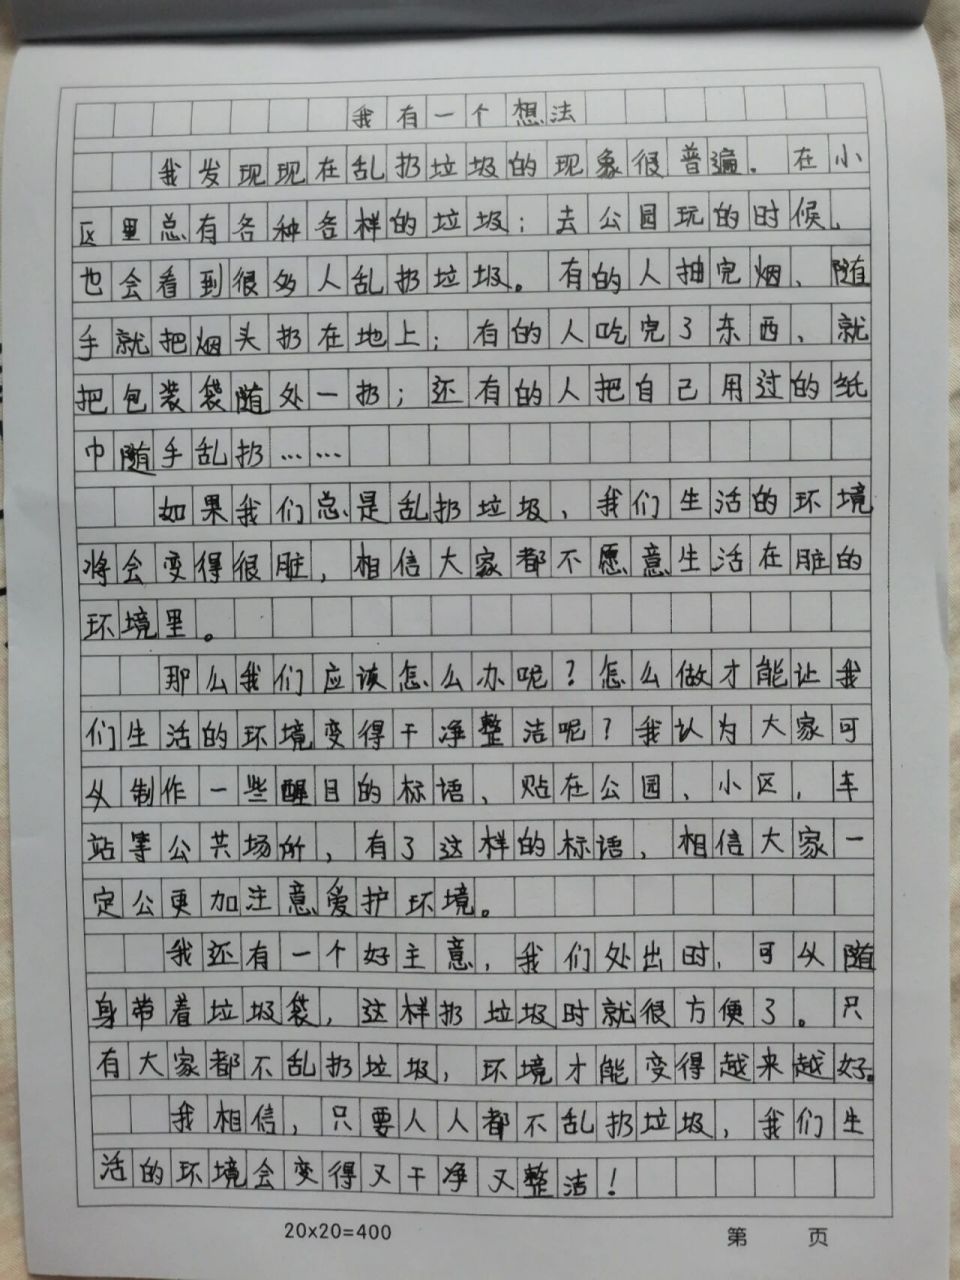 我有一个想法
我发现现在乱扔垃圾的现象很普遍。在小
区里总有各种各样的垃圾；去公园玩的时候，
也会看到很多人乱扔垃圾。有的人抽完烟、随
手就把烟头扔在地上；有的人吃完了东西、就
把包装袋随处一扔；还有的人把自己用过的纸
巾随手乱扔……
如果我们总是乱扔垃圾，我们生活的环境
将会变得很脏，相信大家都不愿意生活在脏的
环境里。
那么我们应该怎么办呢？怎么做才能让我
们生活的环境变得干净整洁呢？我认为大家可
以制作一些醒目的标语、贴在公园、小区，车
站等公共场所，有了这样的标语，相信大家一
定公更加注意爱护环境。
我还有一个好主意，我们处出时，可以随
身带着垃圾袋，这样扔垃圾时就很方便了。只
有大家都不乱扔垃圾，环境才能变得越来越好。
我相信，只要人人都不乱扔垃圾，我们生
活的环境会变得又干净又整洁！
20×20=400
第 页